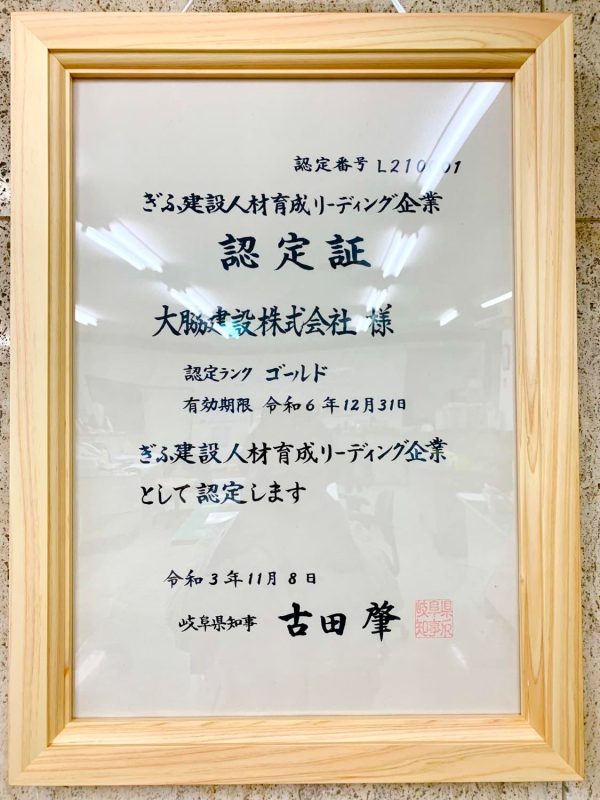 認定番号
ぎふ建設人材育成リーディング企業
認定証
大脇建設株式会社 様
認定ランク ゴールド
有効期限 令和6年12月31日
ぎふ建設人材育成リーディング企業
として認定します
令和3年11月8日
岐阜県知事 古田 肇